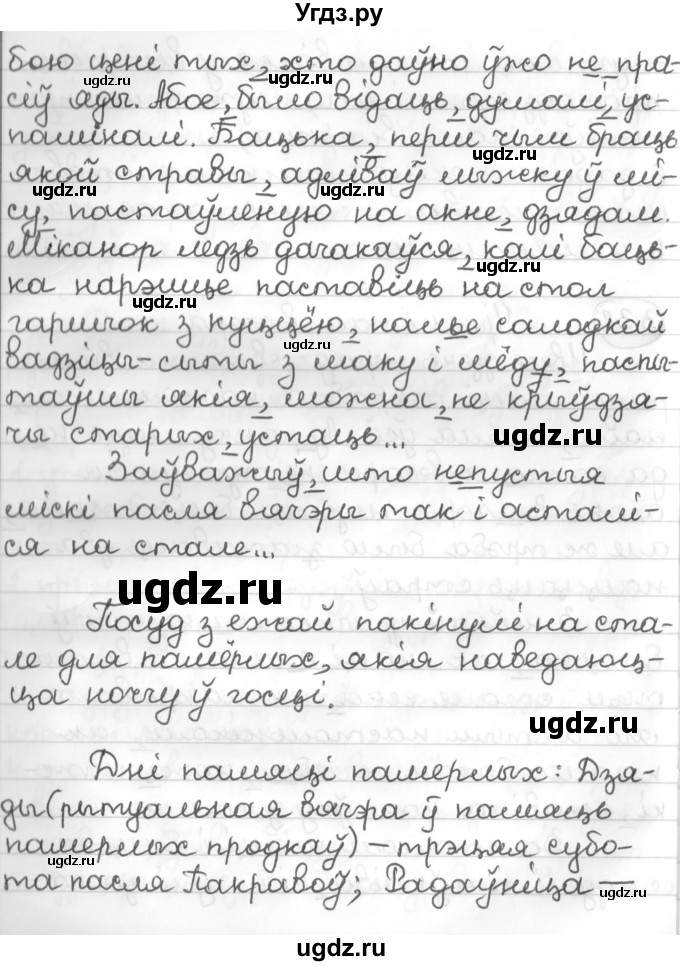 Угдз.ру
бою цені тых, хто даўно ўжо не пра-
сіў яды. Абое, было відаць, думалі, ус-
памінкалі. Бацька, перш чым браць
якой стравы, адліваў лыжку ў мі-
су, пастаўленую на акне, дзядам.
Міканор ледзь дачакаўся, калі баць-
ка нарэшце паставіць на стол
гаршчок з куццёю, налье салодкай
вадзіцы-сыты з маку і мёду, паспы-
таўшы якія, можна, не крыўдзя-
чы старых, устаць...
Заўважыў, што непустыя
міскі пасля вячэры так і асталі-
ся на стале...
Посуд з ежай пакінулі на ста-
ле для памёрлых, якія наведаюц-
ца ноччу ў госці.
Дні памяці памерлых: Дзя-
ды (рытуальная вячэра ў памяць
памерлых продкаў) – трэцяя субо-
та пасля Пакравоў; Радаўніца —
ugdz.ru
ugdz.ru
ugdz.ru
ugdz.ru
ugdz.ru
ugdz.ru
ugdz.ru
ugdz.ru
ugdz.ru
ugdz.ru
ugdz.ru
ugdz.ru
ugdz.ru
ugdz.ru